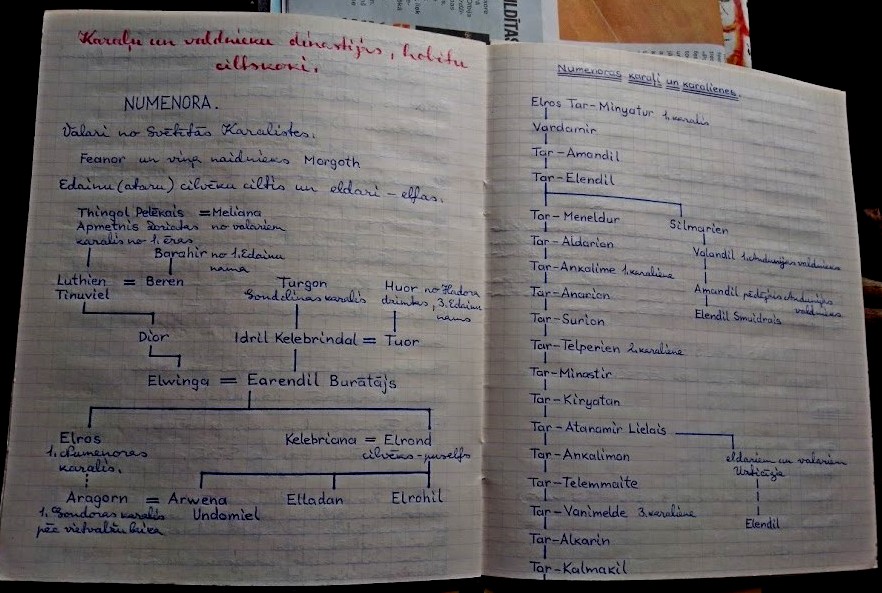 Karaļu un valdnieku dinastijas, hobitu
ciltskoki.
NUMENORA.
Valari no Svētītās Karalistes.
Feanor un viņa naidnieks Morgoth
Edainu (ataru) cilvēku ciltis un eldari - elfas.
Thingol Pelēkais = Meliana
Apmetnis Doriatas no valariem
karalis no 1. ēras
Barahir no 1. Edainu
nama
Luthien = Beren
Tinuviel
Turgon
Gondolinas karalis
Huor no Hadora
dzimtas, 3. Edainu
nams
Dior
Idril Kelebrindal = Tuor
Elwinga = Earendil Burātājs
Elros
1. Numenoras
karalis.
Kelebriana = Elrond
cilvēks - puselfs
Aragorn = Arwena
Undomiel
Elladan
Elrohil
1. Gondoras karalis
pēc vietvalžu laika
Numenoras karaļi un karalienes.
Elros Tar-Minyatur 1. karalis
Vardamir
Tar-Amandil
Tar-Elendil
Tar-Meneldur
Silmarien
Tar-Aldarion
Valandil 1. Andunijas valdnieks
Tar-Ankalime 1. karaliene
Tar-Anarion
Amandil pēdējais Andunijas
valdnieks
Tar-Surion
Elendil Smuidrais
Tar-Telperien 2. karaliene
Tar-Minastir
Tar-Kiryatan
Tar-Atanamir Lielais
Tar-Ankalimon
eldariem un valariem
Uzticīgie
Tar-Telemmaite
Tar-Vanimelde 3. karaliene
Elendil
Tar-Alkarin
Tar-Kalmakil
ILDĪTAS